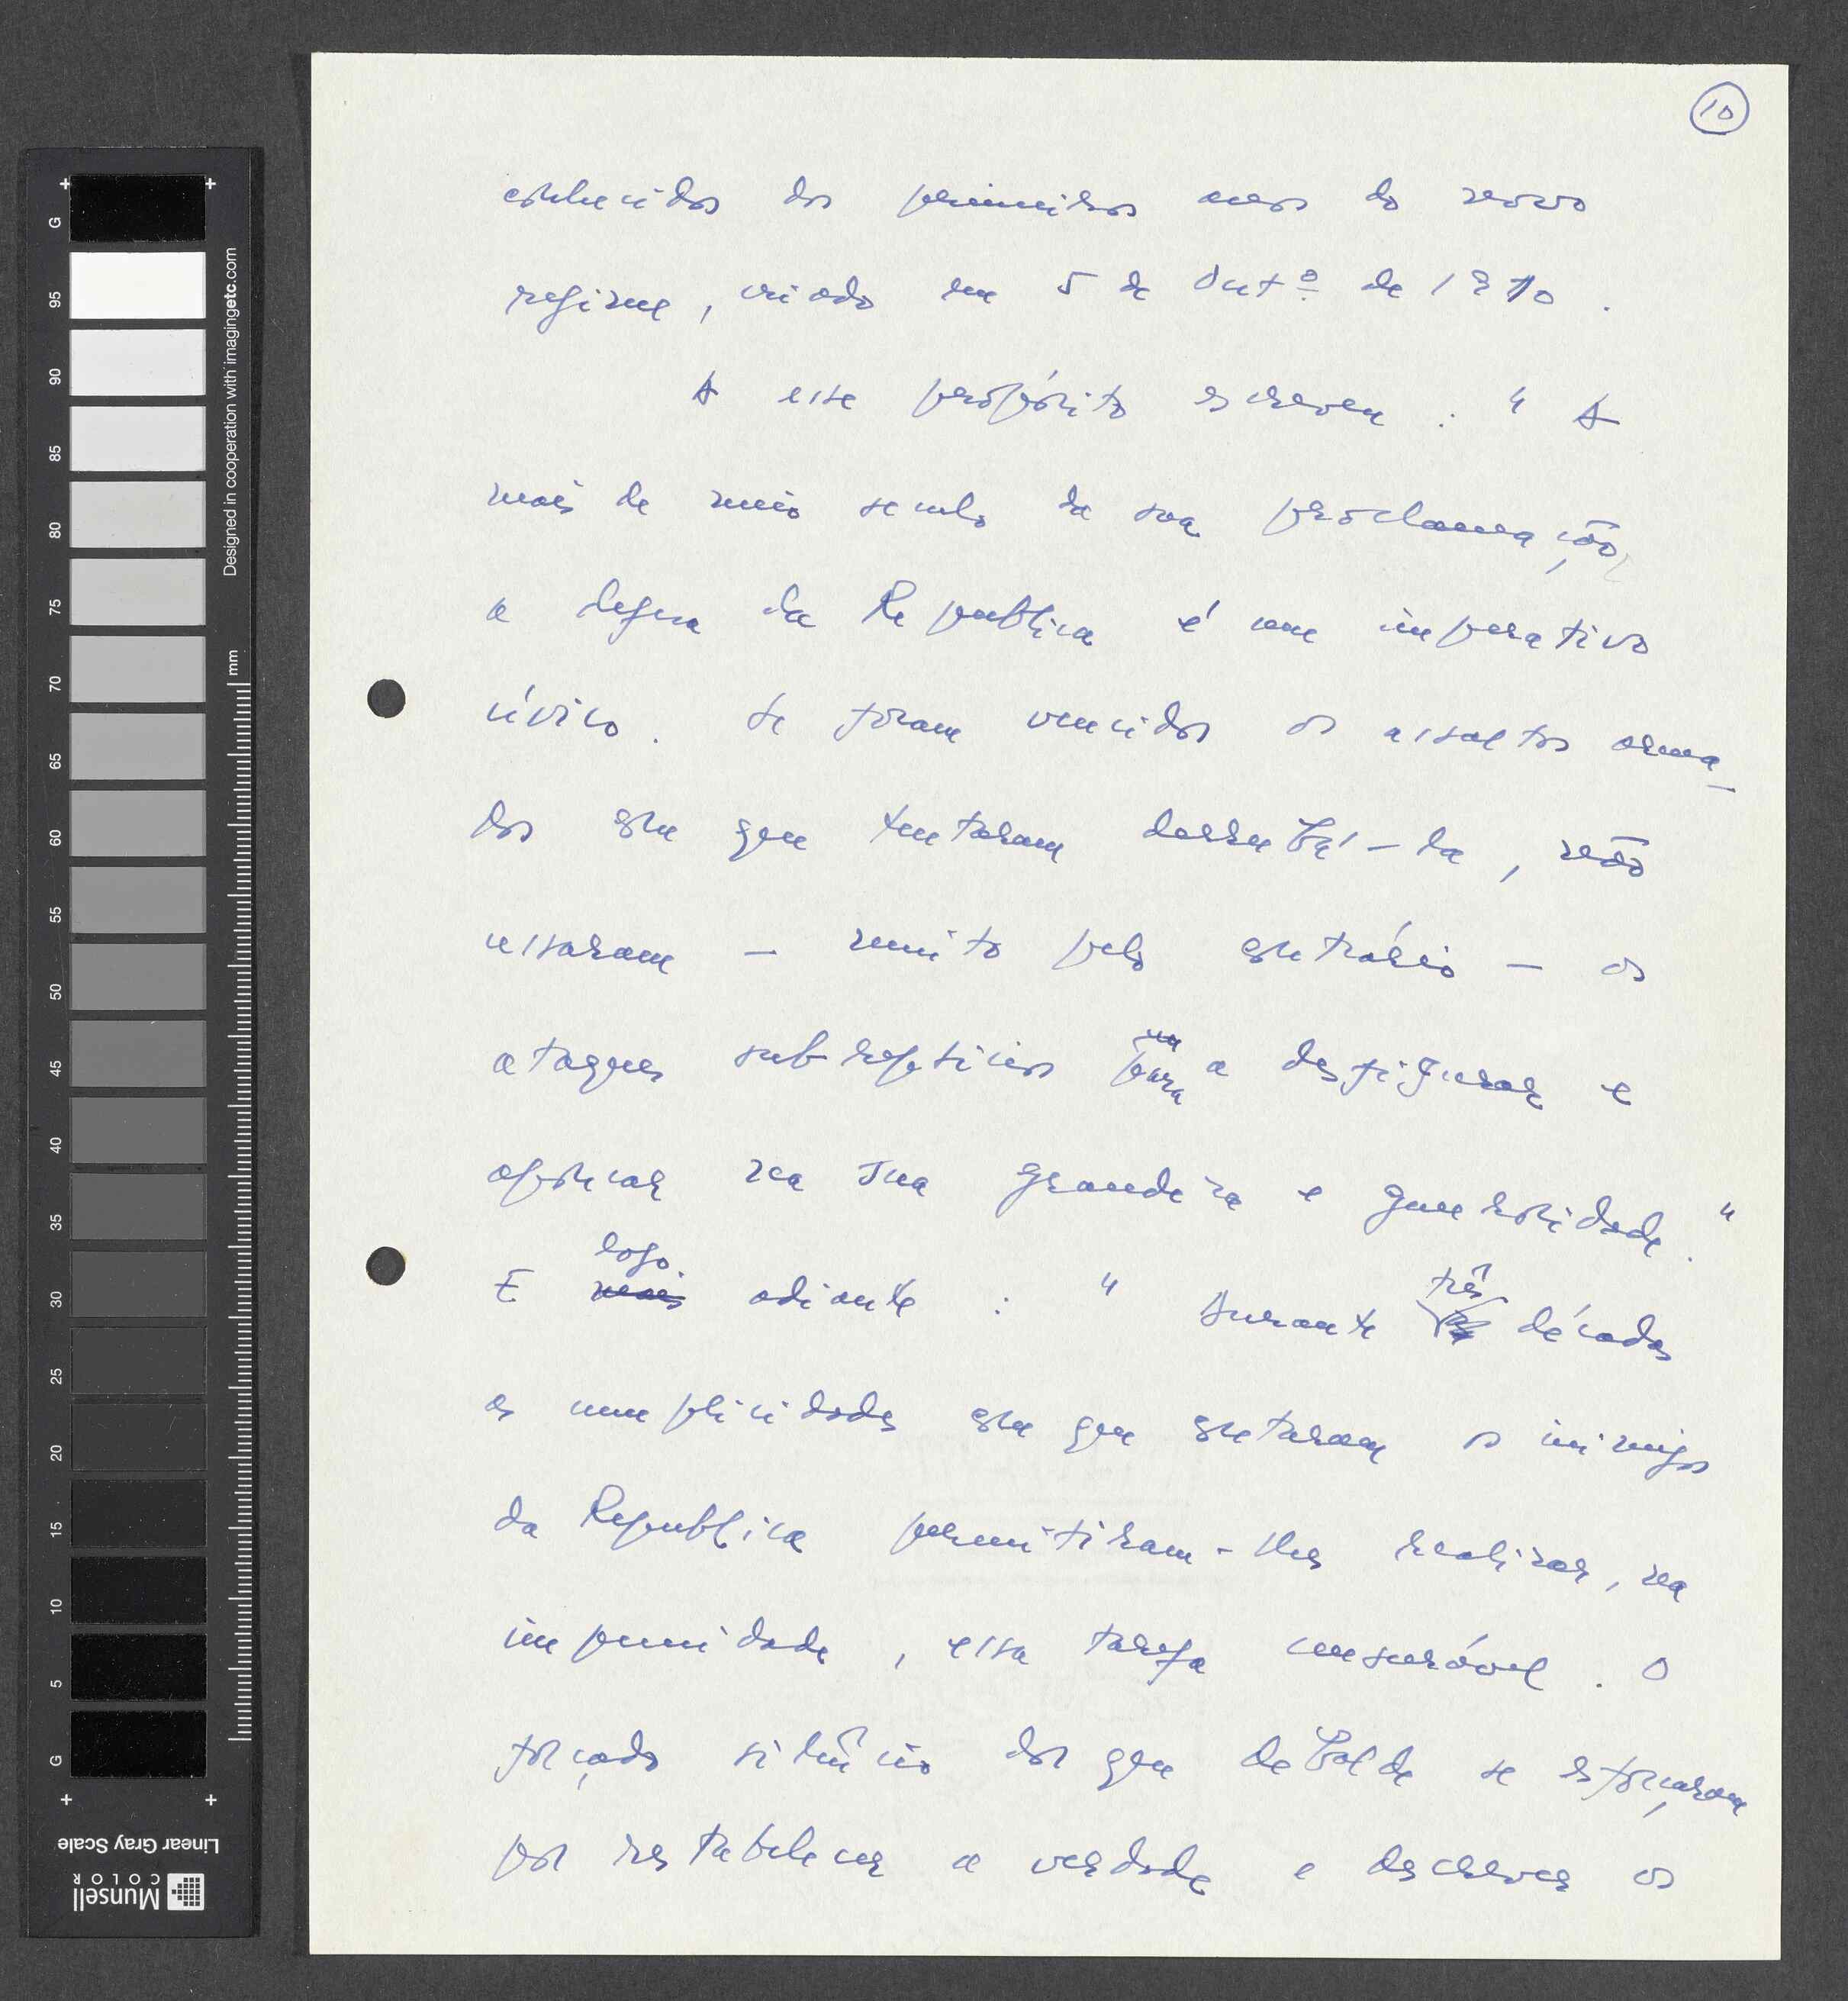 10
conhecidos dos primeiros anos do novo
regime, criado em 5 de Outº de 1910.
A esse propósito escreveu : " A
mais de meio seculo da sua proclamação,
a defesa da Republica é um imperativo
cívico. Se foram vencidos os assaltos arma-
dos com que tentaram derrubá-la, não
cessaram - muito pelo contrário - os
ataques subrepticios para a desfigurar e
apoucar na sua grandeza e generosidade."
E logo adiante : " Durante três décadas
as cumplicidades com que contaram os inimigos
da Republica permitiram-lhes realizar, na
impunidade, essa tarefa censurável. O
forçado silêncio dos que debalde se esforçaram
por restabelecer a verdade e descrever os
G 95 90 85 80 75 70 65 60 55 50 45 40 35 30 25 20 15 10 5 G
mm
Designed in cooperation with imagingetc.com
Linear Gray Scale
Munsell
COLOR